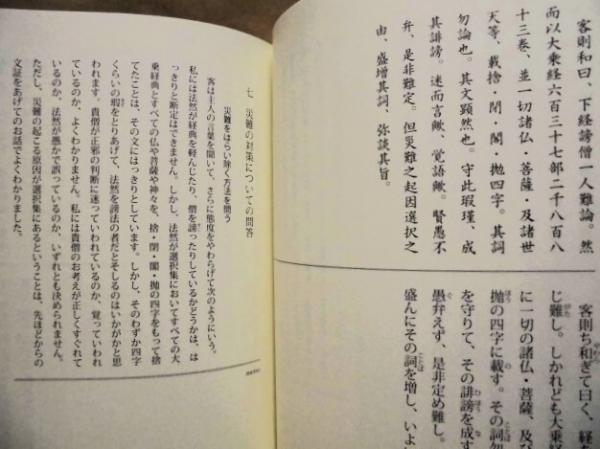 客則和曰、下経謗僧一人難論。然
而以大乗経六百三十七部二千八百八
十三巻、並一切諸仏・菩薩・及諸世
天等、載捨・閉・閣・抛四字。其詞
勿論也。其文顕然也。守此瑕瑾、成
其誹謗。迷而言歟、覚語歟。賢愚不
弁、是非難定。但災難之起因選択之
由、盛増其詞、弥談其旨。
客則ち和ぎて曰く、経を
じ難し。しかれども大乗経
に一切の諸仏・菩薩、及び
抛の四字に載す。その詞勿
を守りて、その誹謗を成す
愚弁えず、是非定め難し。
盛んにその詞を増し、いよい
七 災難の対策についての問答
災難をはらい除く方法を問う
客は主人の言葉を聞いて、さらに態度をやわらげて次のようにいう。
私には法然が経典を軽んじたり、僧を謗ったりしているかどうかは、は
っきりと断定はできません。しかし、法然が選択集においてすべての大
乗経典とすべての仏や菩薩や神々を、捨・閉・閣・抛の四字をもって捨
てたことは、その文にはっきりとしています。しかし、そのわずか四字
くらいの瑕をとりあげて、法然を謗法の者だとそしるのはいかがかと思
われます。貴僧が正邪の判断に迷っていわれているのか、覚っていわれ
ているのか、よくわかりません。私には貴僧のお考えが正しくすぐれて
いるのか、法然が愚かで誤っているのか、いずれとも決められません。
ただし、災難の起こる原因が選択集にあるということは、先ほどからの
文証をあげてのお話でよくわかりました。